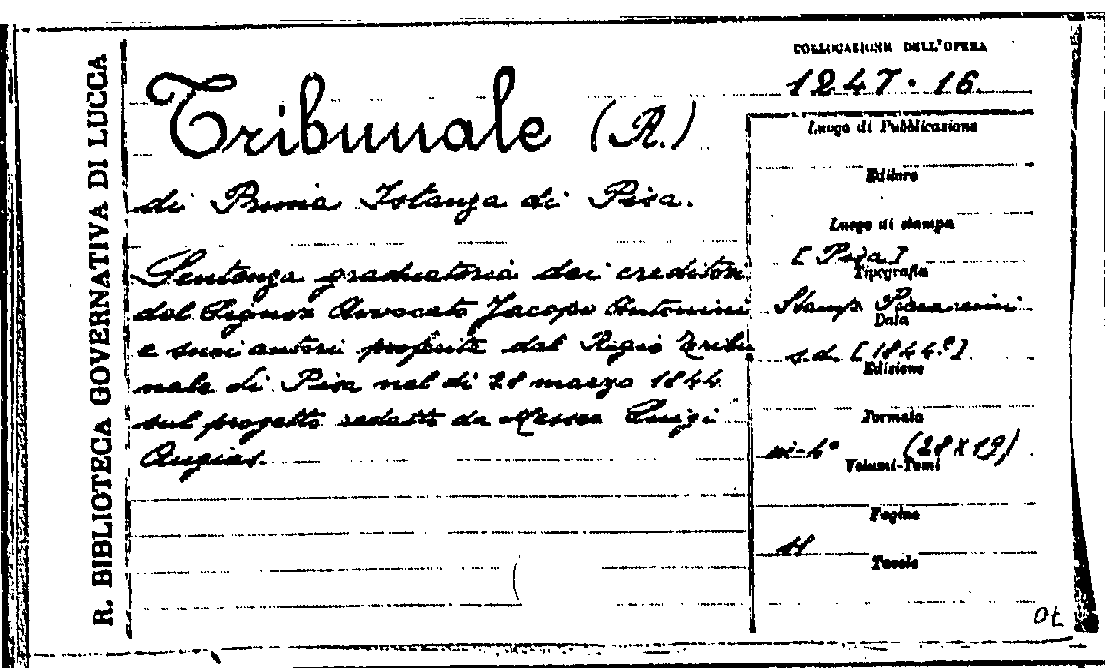 R. BIBLIOTECA GOVERNATIVA DI LUCCA
COLLOCAZIONE DELL'OPERA
1247.16.
Tribunale (R.)
di Prima Istanza di Pisa.
Sentenza graduatoria dei creditori
del Signor Avvocato Jacopo Antonini
e suoi autori proferita dal Regio Tribu
nale di Pisa nel di 28 marzo 1844
sul progetto redatto da Messer Luigi
Augias.
Luogo di Pubblicazione
Editore
Luogo di stampa
[Pisa]
Tipografia
Stamp.
Data
s.d. [1844?].
Edizione
Formato
in-4° (28X19)
Volumi-Tomi
Pagine
Tavole